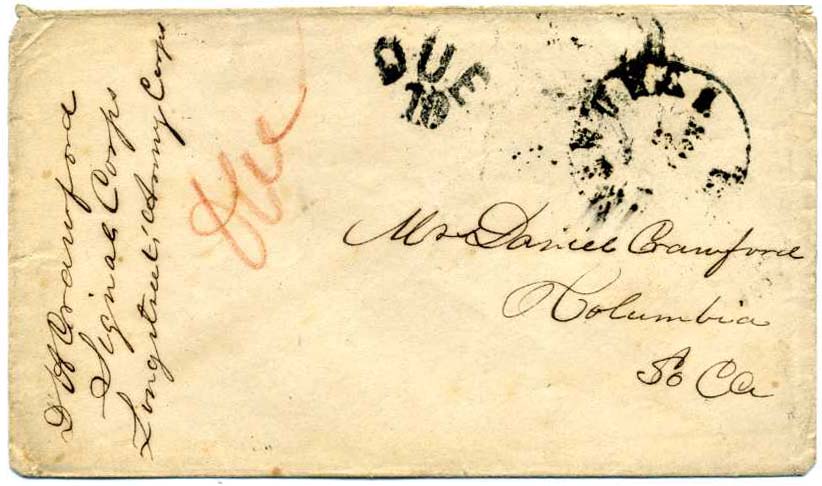 D H Crawford
Signal Corps
Longstreets Army Corps
DUE
10
Mr Daniel Crawford
Columbia
So Ca